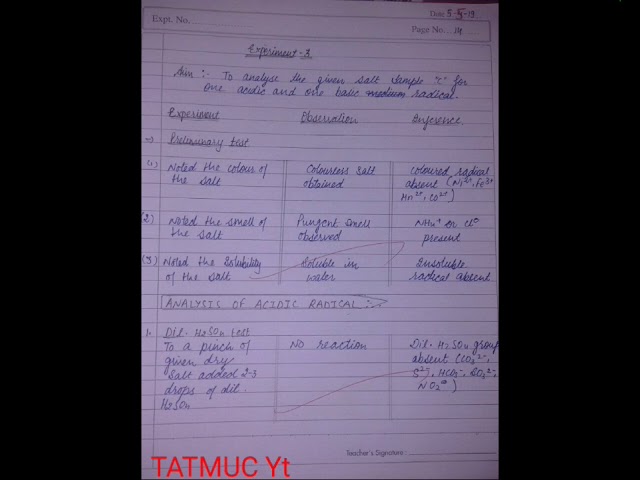 Date 5
Expt. No.
Page No. 14
Experiment - 3
Aim :- To analyse the given salt sample "C" for
one acidic and one basic radical.
Experiment Observation Inference.
→ Preliminary test
(1) Noted the colour of the salt
Colourless salt obtained
Coloured radical absent (Ni²⁺, Fe³⁺ Mn²⁺, Co²⁺)
(2) Noted the smell of the salt
Pungent smell observed
NH₄⁺ or present
(3) Noted the solubility of the salt
Soluble in water
Insoluble radical absent.
ANALYSIS OF ACIDIC RADICAL :-
1. Dil. H₂SO₄ test
To a pinch of
given dry
salt added 2-3
drops of dil.
H₂SO₄
NO reaction
Dil. H₂SO₄ group
absent (CO₃²⁻,
S²⁻, HCO₃⁻, SO₃²⁻,
NO₂⁻)
Teacher's Signature
TATMUC Yt